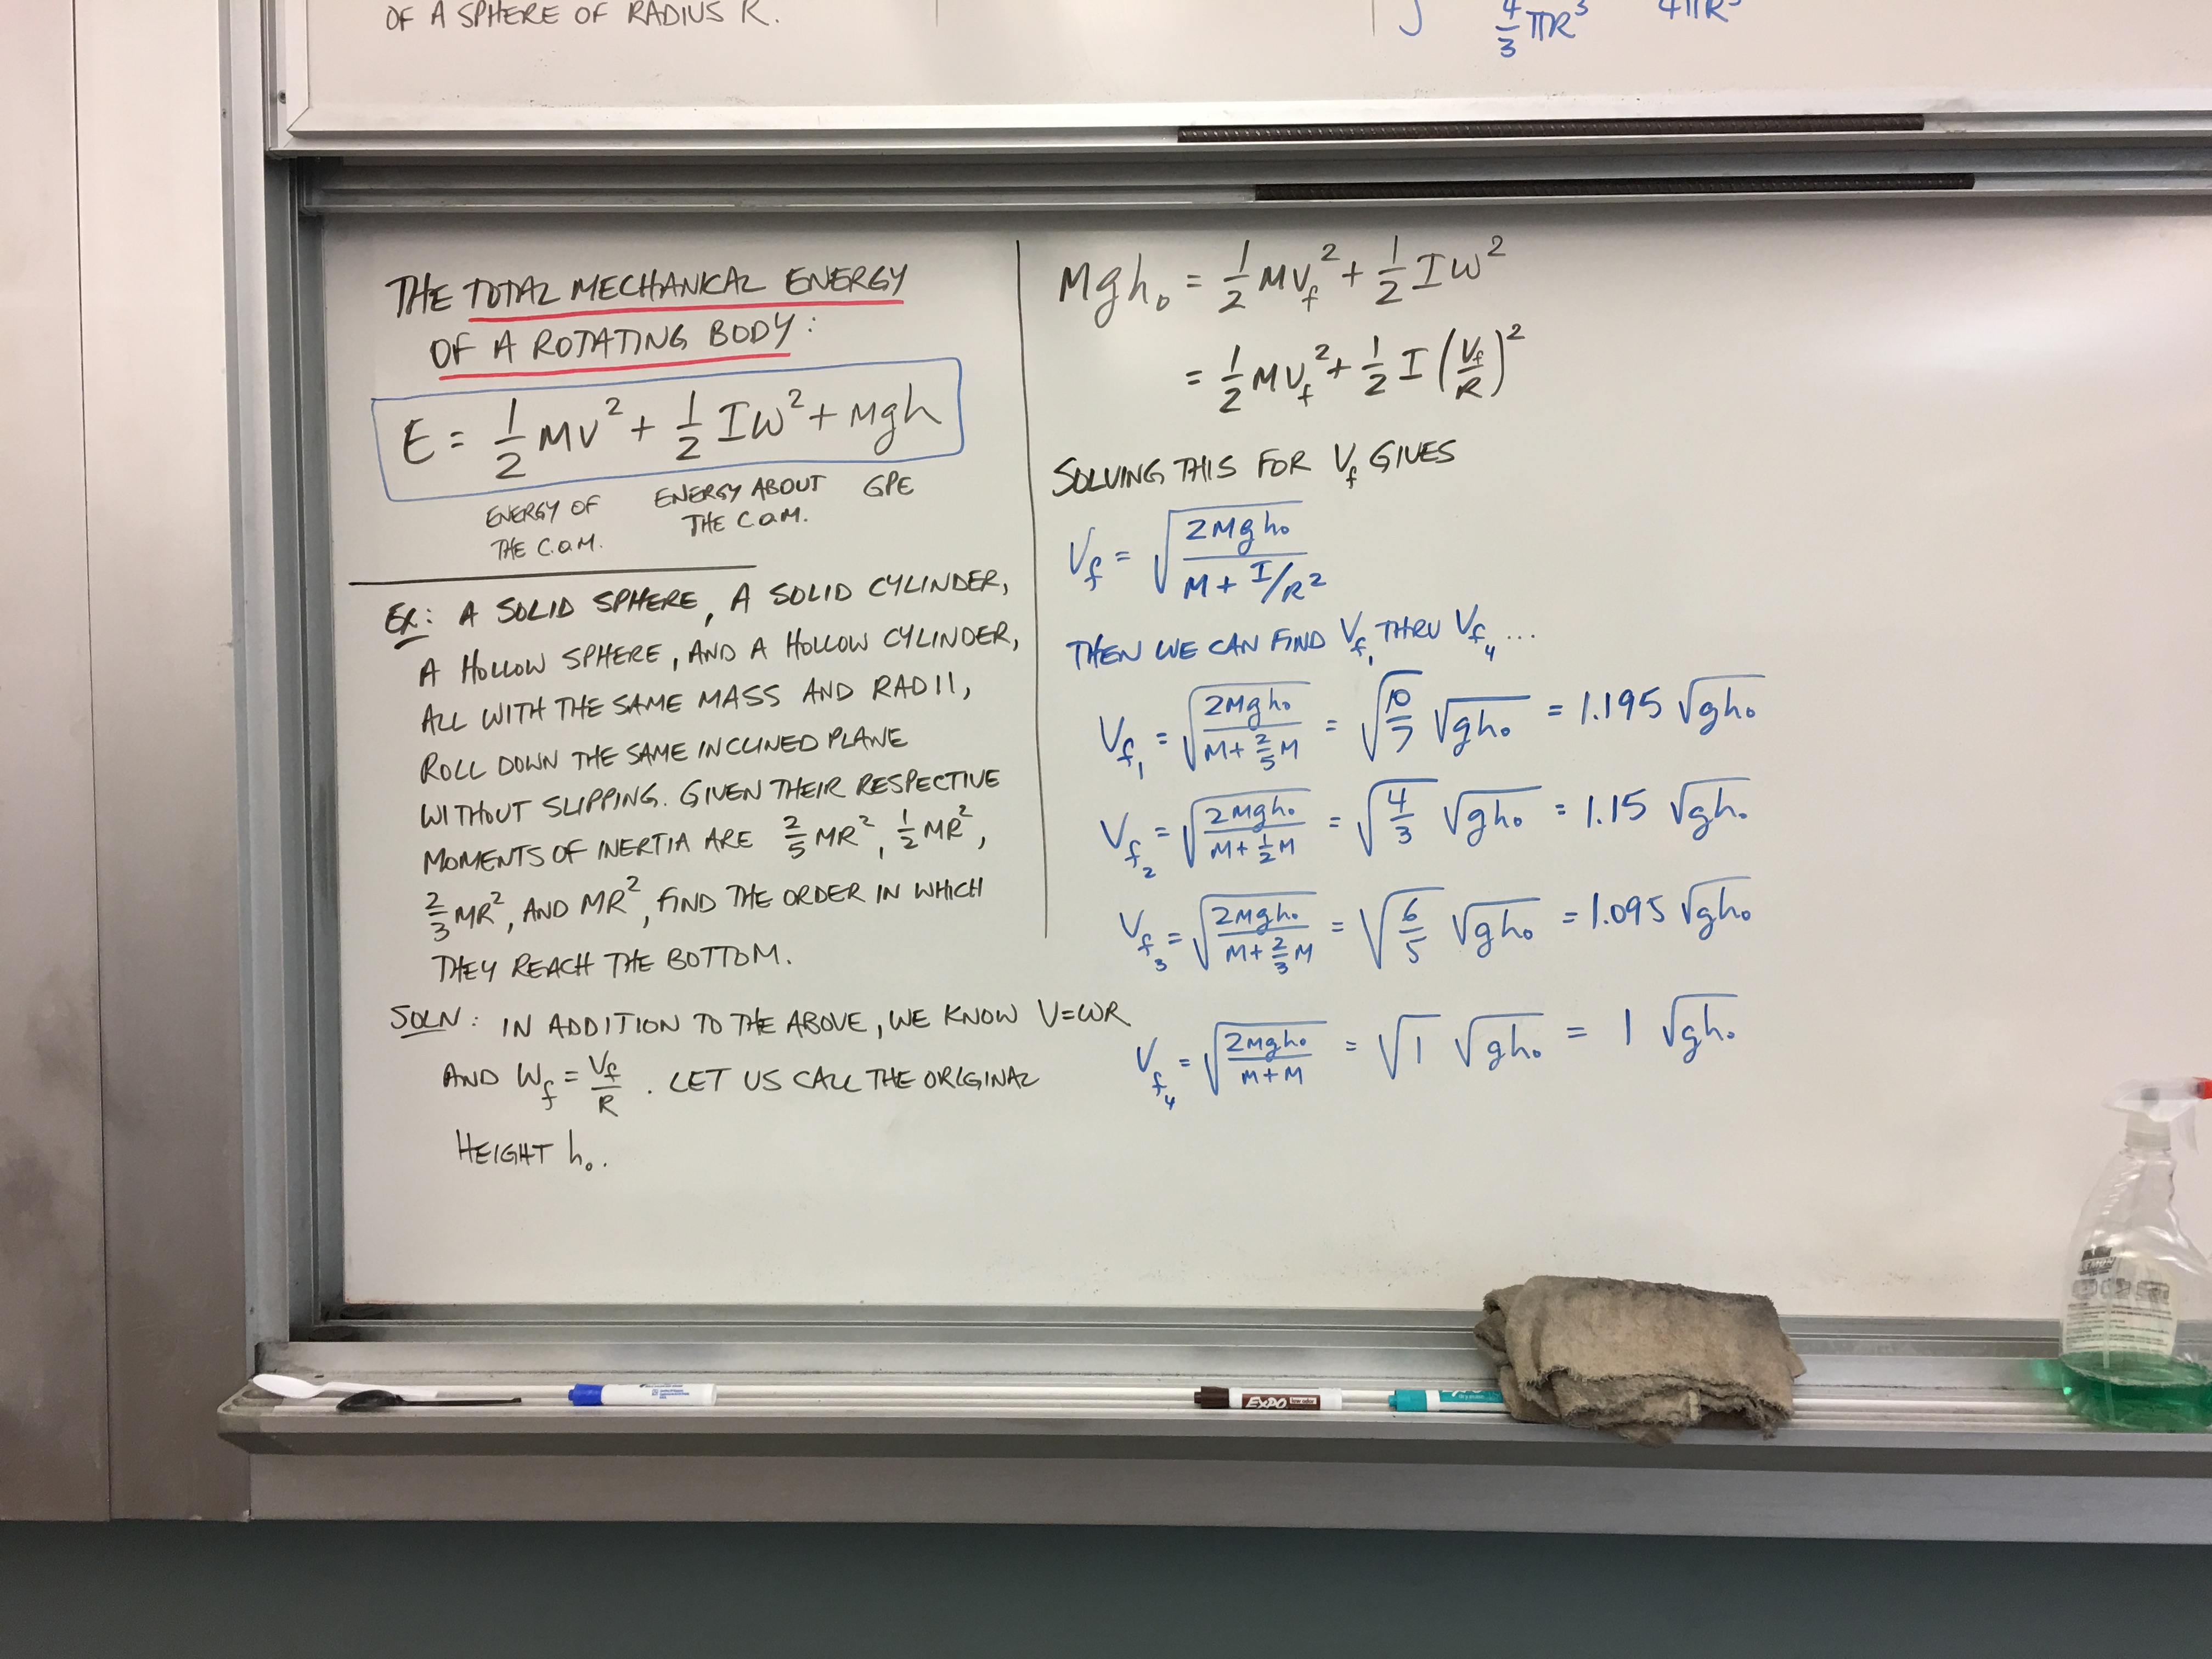 OF A SPHERE OF RADIUS R.
∫ 4/3 πR³ 4πR³
THE TOTAL MECHANICAL ENERGY
OF A ROTATING BODY:
E = 1/2 MV² + 1/2 Iω² + Mgh
ENERGY OF
THE C.O.M.
ENERGY ABOUT
THE C.O.M.
GPE
EX: A SOLID SPHERE, A SOLID CYLINDER,
A HOLLOW SPHERE, AND A HOLLOW CYLINDER,
ALL WITH THE SAME MASS AND RADII,
ROLL DOWN THE SAME INCLINED PLANE
WITHOUT SLIPPING. GIVEN THEIR RESPECTIVE
MOMENTS OF INERTIA ARE 2/5 MR², 1/2 MR²,
2/3 MR², AND MR², FIND THE ORDER IN WHICH
THEY REACH THE BOTTOM.
SOLN: IN ADDITION TO THE ABOVE, WE KNOW V=ωR
AND ω_f = V_f/R. LET US CALL THE ORIGINAL
HEIGHT h₀.
Mgh₀ = 1/2 MV_f² + 1/2 Iω²
= 1/2 MV_f² + 1/2 I (V_f/R)²
SOLVING THIS FOR V_f GIVES
V_f = √(2Mgh₀ / (M + I/R²))
THEN WE CAN FIND V_f₁ THRU V_f₄ ...
V_f₁ = √(2Mgh₀ / (M + 2/5 M)) = √(10/7) √(gh₀) = 1.195 √(gh₀)
V_f₂ = √(2Mgh₀ / (M + 1/2 M)) = √(4/3) √(gh₀) = 1.15 √(gh₀)
V_f₃ = √(2Mgh₀ / (M + 2/3 M)) = √(6/5) √(gh₀) = 1.095 √(gh₀)
V_f₄ = √(2Mgh₀ / (M + M)) = √1 √(gh₀) = 1 √(gh₀)
EXPO low odor